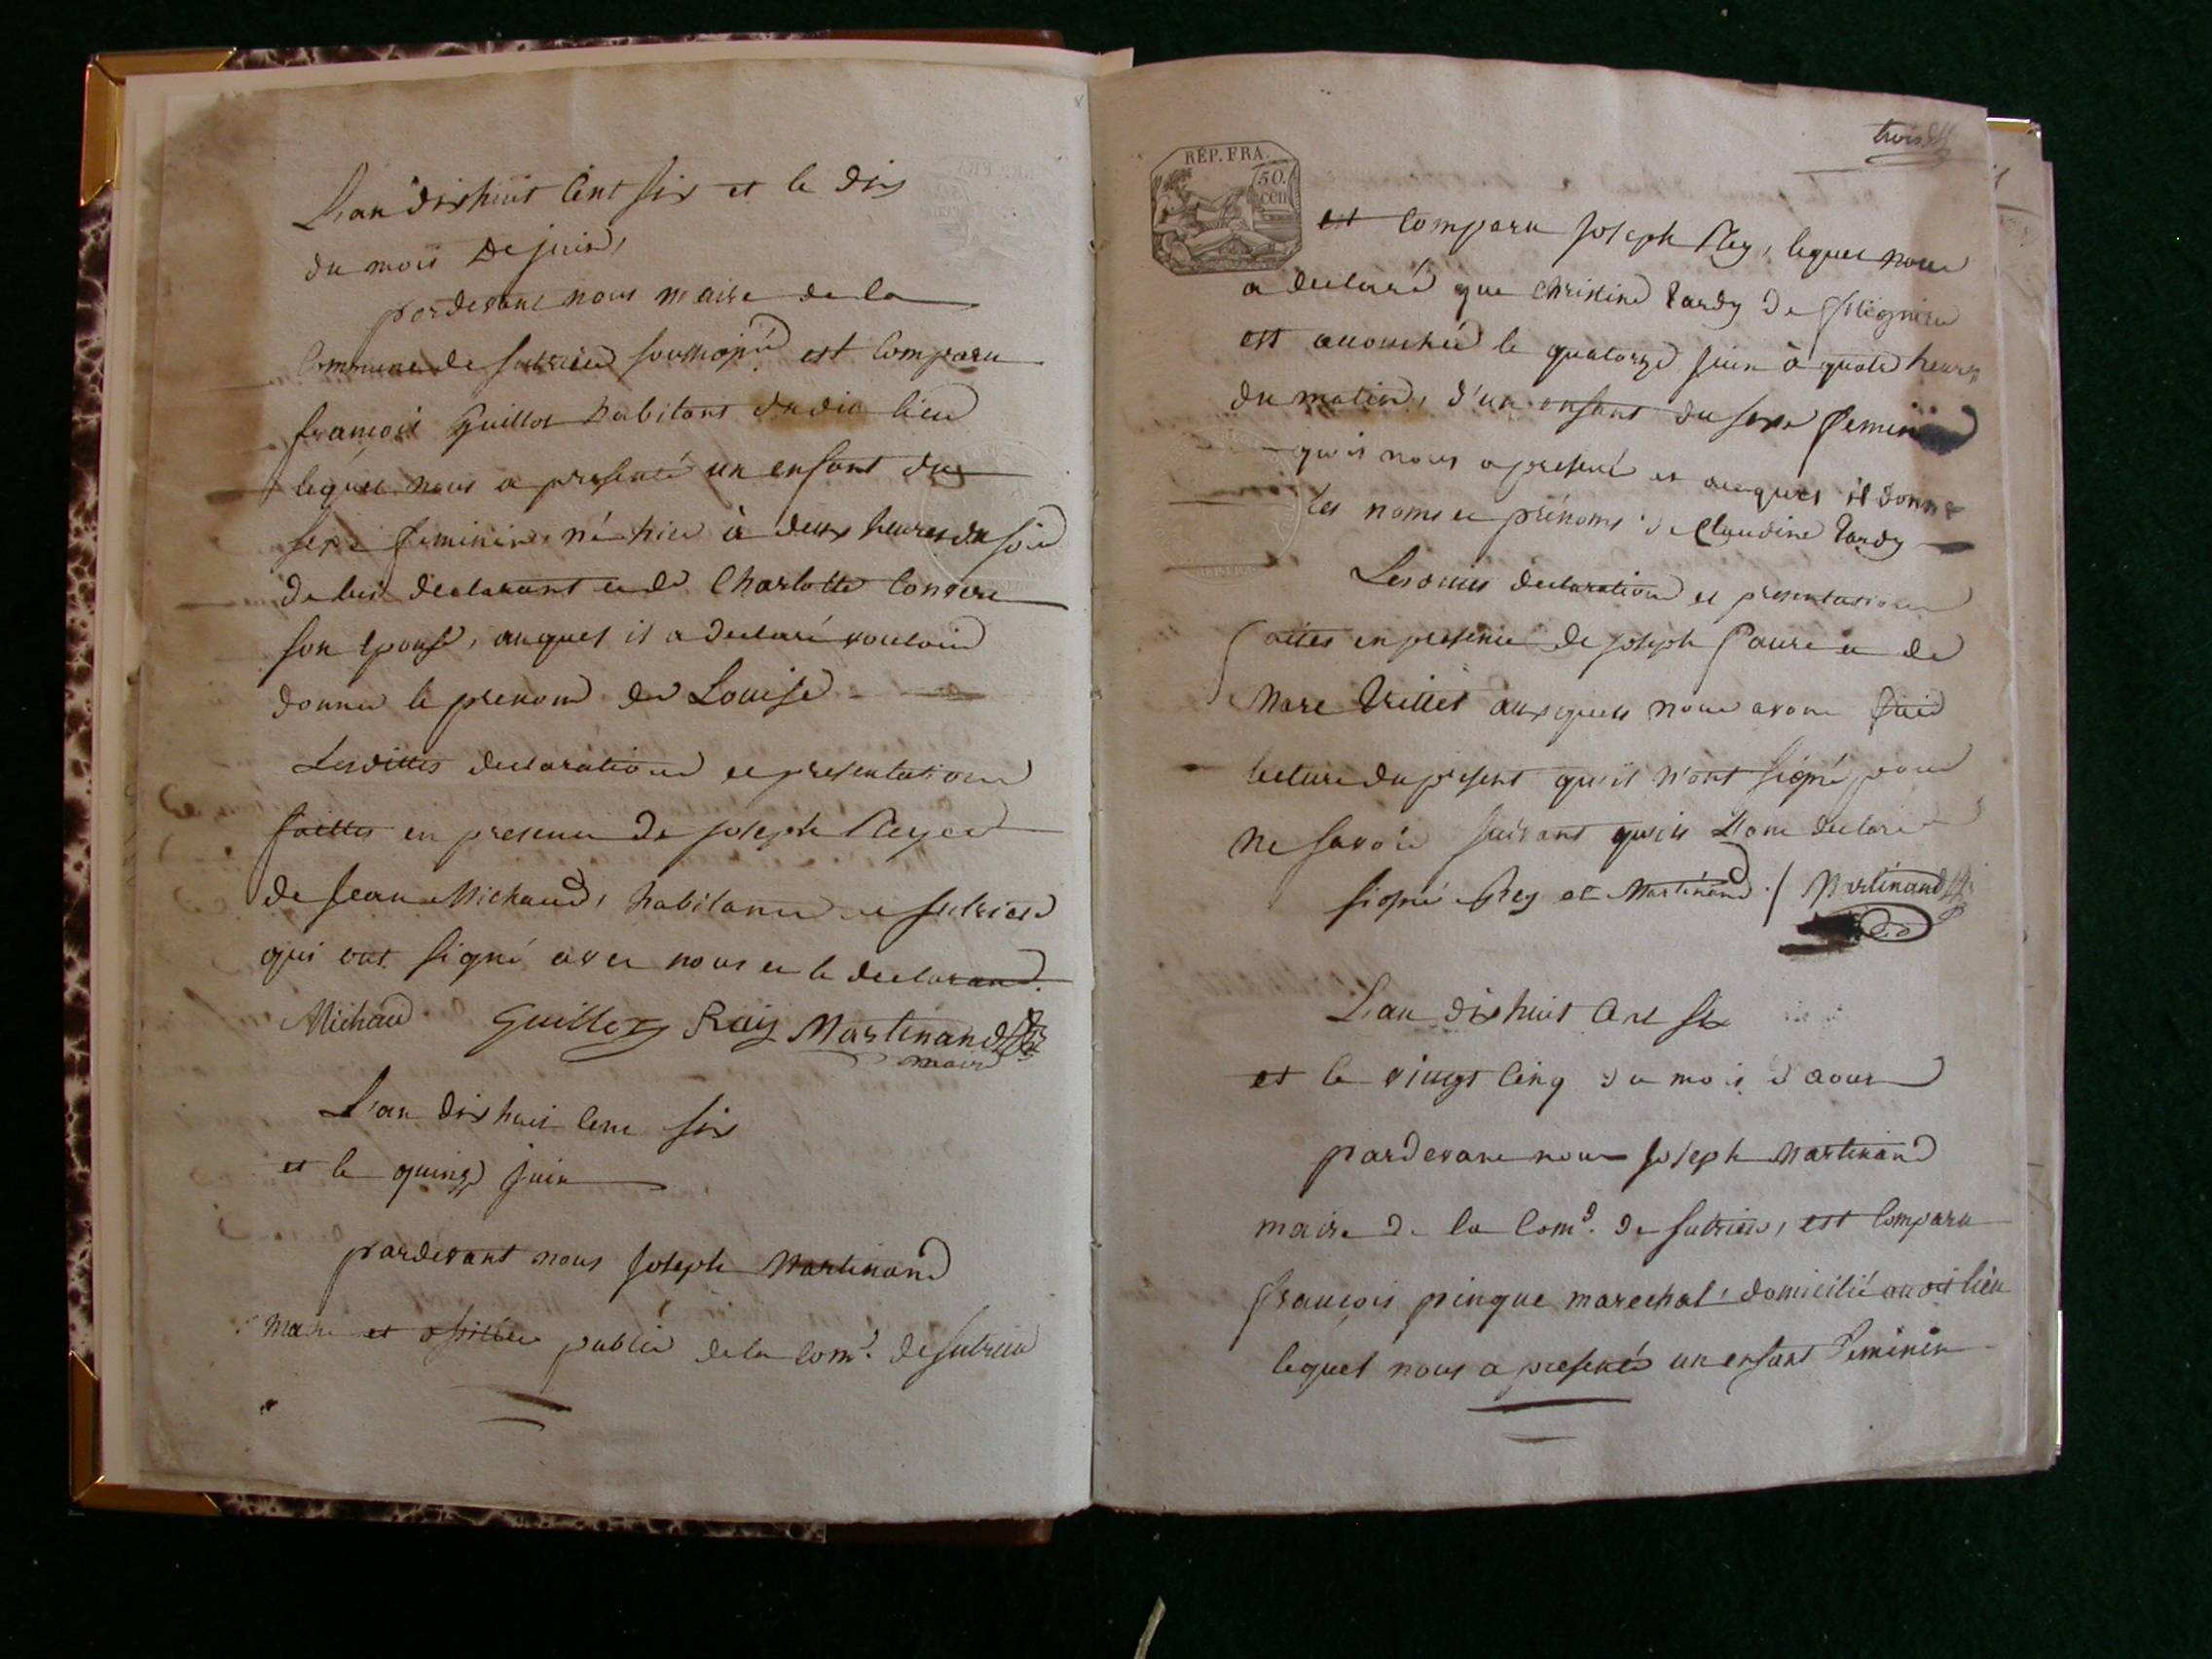 L'an dix huit cent six et le dix
du mois de juin,
pardevant nous maire de la
Commune de Sutrieu soussigné est comparu
françois Guillot habitant dudit lieu
lequel nous a presenté un enfant du
sexe feminin né hier à deux heures du soir
de lui declarant et de Charlotte
son epouse, auquel il a declaré vouloir
donner le prenom de Louise
Lesdittes declaration et presentation
faittes en presence de joseph Rey et
de Jean Michaud, habitant de Sutrieu
qui ont signé avec nous et le declarant.
Michaud Guillot Rey Martinand
maire
L'an dix huit cent six
et le quinze juin
pardevant nous joseph Martinand
maire et officier public de la Com.e de Sutrieu
trois
REP. FRA.
50.
cen
est comparu joseph Rey, lequel nous
a declaré que Christine Tardy de
est accouchée le quatorze juin à quatre heures
du matin, d'un enfant du sexe feminin
qu'il nous a presenté et auquel il donne
les noms et prénoms de Claudine Tardy
Lesdittes declaration et presentation
faites en presence de joseph faure et de
Marc Trillet auxquels nous avons fait
lecture du present qu'il n'ont signé pour
ne savoir suivant qu'ils l'ont declaré
signé Rey et Martinand ./ Martinand
L'an dix huit cent six
et le vingt cinq du mois d'aout
pardevant nous joseph Martinand
maire de la Com.e de Sutrieu, est comparu
françois pingue marechal domicilié audit lieu
lequel nous a presenté un enfant feminin